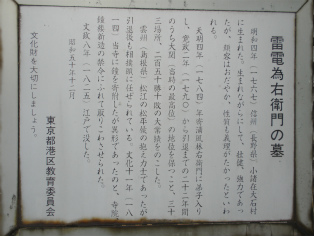 雷電為右衛門の墓
明和四年(一七六七)信州(長野県)小諸在大石村
に生まれた。生まれながらにして、壮健、強力であっ
たが、顔容はおだやか、性質も義理がたかったといわ
れる。
天明四年(一七八四)年寄浦風林右衛門に弟子入り
し、寛政二年(一七九〇)から引退までの二十二年間
のうち大関(当時の最高位)の地位を保つこと、三十
三場所、二百五十勝十敗の大業績をのこした。
雲州(島根県)松江の松平侯の抱え力士であったが
引退後も相撲頭取に任ぜられている。文化十一年(一八
一四)当寺に鐘を寄附したが異形であったのと、寺院
鐘楼新造の禁令にふれて取りこわさせられた。
文政八年(一八二五)江戸で没した。
昭和五十年十二月
東京都港区教育委員会
文化財を大切にしましょう。